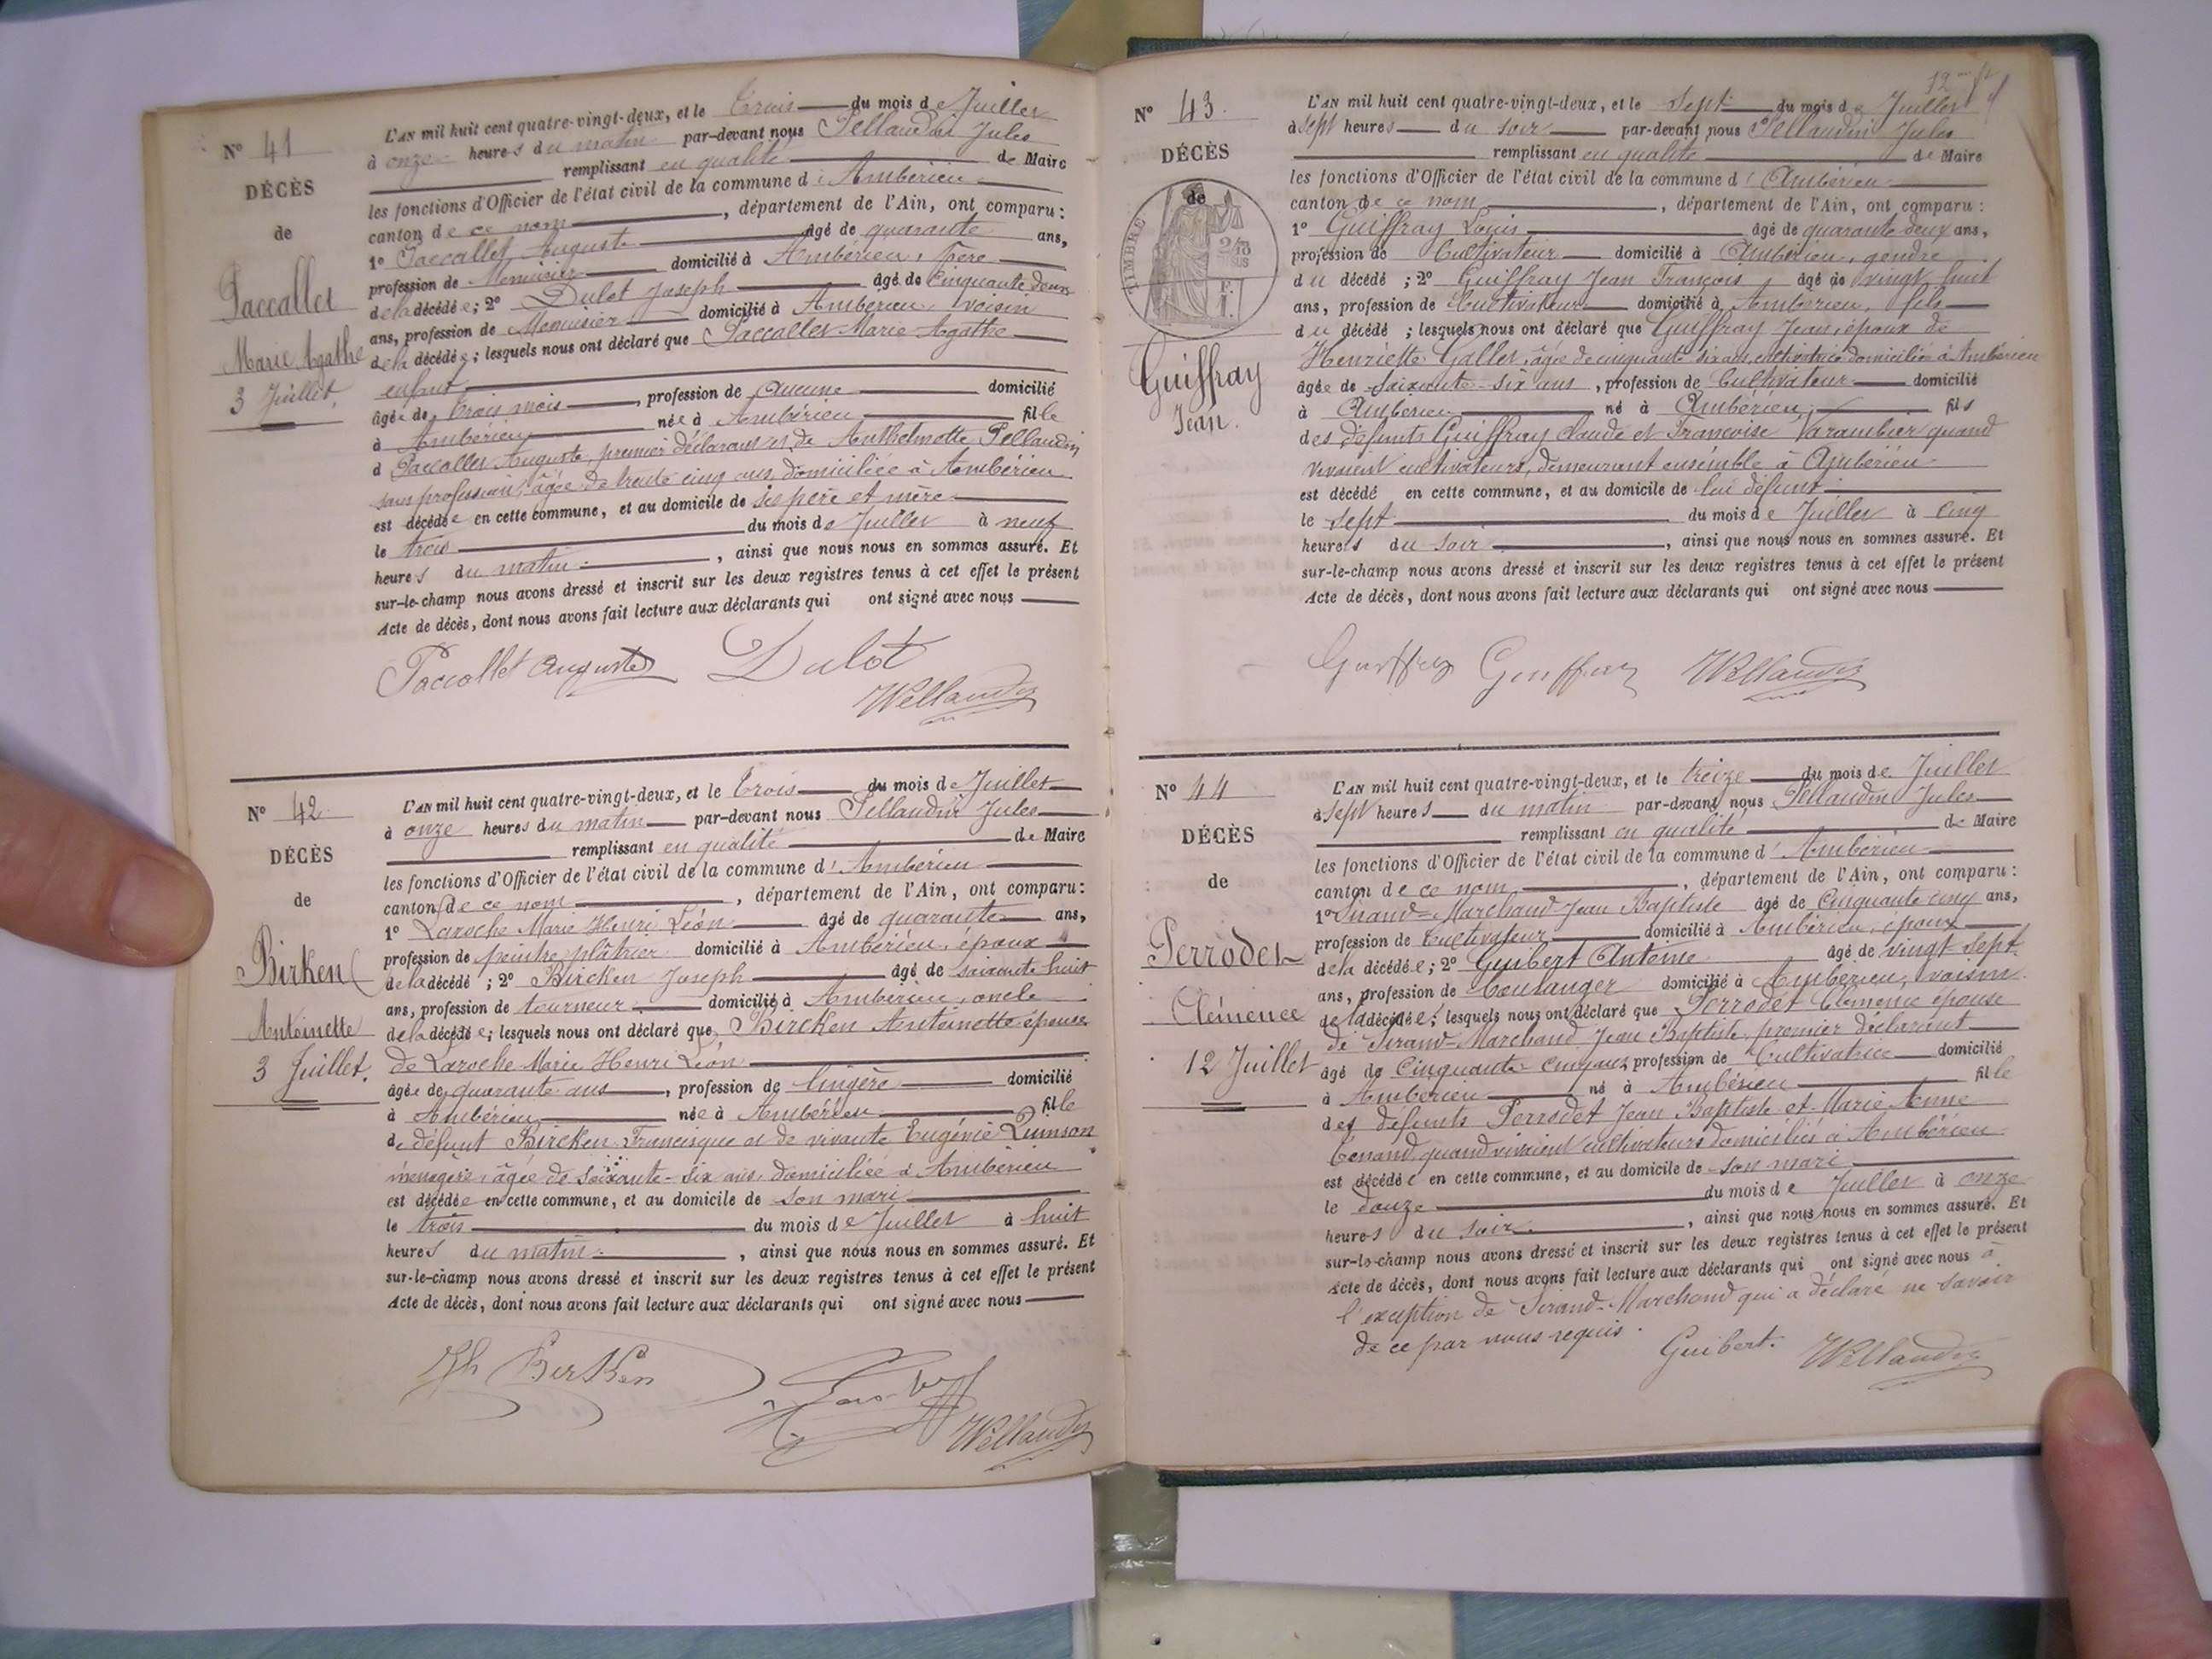 N° 41
DÉCÈS
de
Paccallet
Marie Agathe
3 Juillet.
L'AN mil huit cent quatre-vingt-deux, et le Trois du mois de Juillet
à onze heures du matin par-devant nous Pellaudin Jules
remplissant en qualité de Maire
les fonctions d'Officier de l'état civil de la commune d'Ambérieu
canton de ce nom, département de l'Ain, ont comparu:
1° Paccallet Auguste âgé de quarante ans,
profession de Menuisier domicilié à Ambérieu, Père
de la décédée; 2° Dulot Joseph âgé de Cinquante deux
ans, profession de Menuisier domicilié à Ambérieu, voisin
de la décédée; lesquels nous ont déclaré que Paccallet Marie Agathe
enfant
âgée de trois mois, profession de aucune domicilié
à Ambérieu née à Ambérieu fille
d Paccallet Auguste, premier déclarant et de Anthelmette Pellaudin
sans profession, âgée de trente cinq ans, domiciliée à Ambérieu
est décédée en cette commune, et au domicile de ses père et mère
le trois du mois de Juillet à neuf
heures du matin, ainsi que nous nous en sommes assuré. Et
sur-le-champ nous avons dressé et inscrit sur les deux registres tenus à cet effet le présent
Acte de décès, dont nous avons fait lecture aux déclarants qui ont signé avec nous
Paccallet Auguste Dulot
Pellaudin
N° 42
DÉCÈS
de
Birken
Antoinette
3 Juillet.
L'AN mil huit cent quatre-vingt-deux, et le Trois du mois de Juillet
à onze heures du matin par-devant nous Pellaudin Jules
remplissant en qualité de Maire
les fonctions d'Officier de l'état civil de la commune d'Ambérieu
canton de ce nom, département de l'Ain, ont comparu:
1° Laroche Marie Henri Léon âgé de quarante ans,
profession de peintre plâtrier domicilié à Ambérieu, époux
de la décédé; 2° Bircken Joseph âgé de soixante huit
ans, profession de tourneur domicilié à Ambérieu, oncle
de la décédée; lesquels nous ont déclaré que Bircken Antoinette épouse
de Laroche Marie Henri Léon
âgée de quarante ans, profession de lingère domicilié
à Ambérieu née à Ambérieu fille
de défunt Bircken Francisque et de vivante Eugénie
ménagère, âgée de soixante-six ans, domiciliée à Ambérieu
est décédée en cette commune, et au domicile de son mari
le trois du mois de Juillet à huit
heures du matin, ainsi que nous nous en sommes assuré. Et
sur-le-champ nous avons dressé et inscrit sur les deux registres tenus à cet effet le présent
Acte de décès, dont nous avons fait lecture aux déclarants qui ont signé avec nous
Jh BirKen
Pellaudin
12
N° 43.
DÉCÈS
de
TIMBRE
Guiffray
Jean.
L'AN mil huit cent quatre-vingt-deux, et le Sept du mois de Juillet
à sept heures du soir par-devant nous Pellaudin Jules
remplissant en qualité de Maire
les fonctions d'Officier de l'état civil de la commune d'Ambérieu
canton de ce nom, département de l'Ain, ont comparu:
1° Guiffray Louis âgé de quarante deux ans,
profession de Cultivateur domicilié à Ambérieu, gendre
du décédé; 2° Guiffray Jean François âgé de vingt huit
ans, profession de Cultivateur domicilié à Ambérieu, fils
du décédé; lesquels nous ont déclaré que Guiffray Jean, époux de
Henriette Gallet, âgée de cinquante six ans, cultivatrice domiciliée à Ambérieu
âgée de soixante-six ans, profession de Cultivateur domicilié
à Ambérieu né à Ambérieu, fils
des défunts Guiffray Claude et Françoise Varambier quand
vivaient cultivateurs, demeurant ensemble à Ambérieu
est décédé en cette commune, et au domicile de lui défunt
le sept du mois de Juillet à Cinq
heures du soir, ainsi que nous nous en sommes assuré. Et
sur-le-champ nous avons dressé et inscrit sur les deux registres tenus à cet effet le présent
Acte de décès, dont nous avons fait lecture aux déclarants qui ont signé avec nous
Guiffray Guiffray Pellaudin
N° 44
DÉCÈS
de
Perrodet
Clémence
12 Juillet
L'AN mil huit cent quatre-vingt-deux, et le treize du mois de Juillet
à sept heures du matin par-devant nous Pellaudin Jules
remplissant en qualité de Maire
les fonctions d'Officier de l'état civil de la commune d'Ambérieu
canton de ce nom, département de l'Ain, ont comparu:
1° Sirand-Marchand Jean Baptiste âgé de Cinquante cinq ans,
profession de Cultivateur domicilié à Ambérieu, époux
de la décédée; 2° Guibert Antoine âgé de vingt-sept
ans, profession de boulanger domicilié à Ambérieu, voisin
de la décédée; lesquels nous ont déclaré que Perrodet Clémence épouse
de Sirand-Marchand Jean Baptiste, premier déclarant
âgé de Cinquante-cinq ans, profession de Cultivatrice domicilié
à Ambérieu né à Ambérieu fille
des défunts Perrodet Jean Baptiste et Marie Anne
Tenand, quand vivaient cultivateurs domiciliés à Ambérieu
est décédée en cette commune, et au domicile de son mari
le douze du mois de Juillet à onze
heures du soir, ainsi que nous nous en sommes assuré. Et
sur-le-champ nous avons dressé et inscrit sur les deux registres tenus à cet effet le présent
Acte de décès, dont nous avons fait lecture aux déclarants qui ont signé avec nous à
l'exception de Sirand-Marchand qui a déclaré ne savoir
de ce par nous requis.
Guibert. Pellaudin